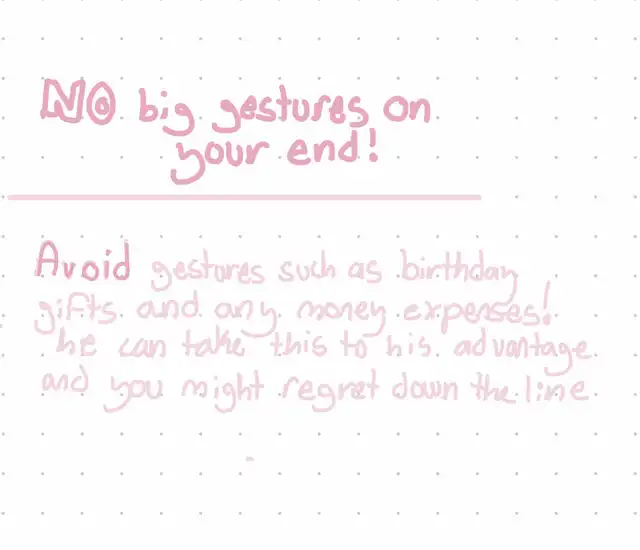 NO big gestures on
your end!
Avoid gestures such as birthday
gifts and any money expenses!
he can take this to his advantage
and you might regret down the line